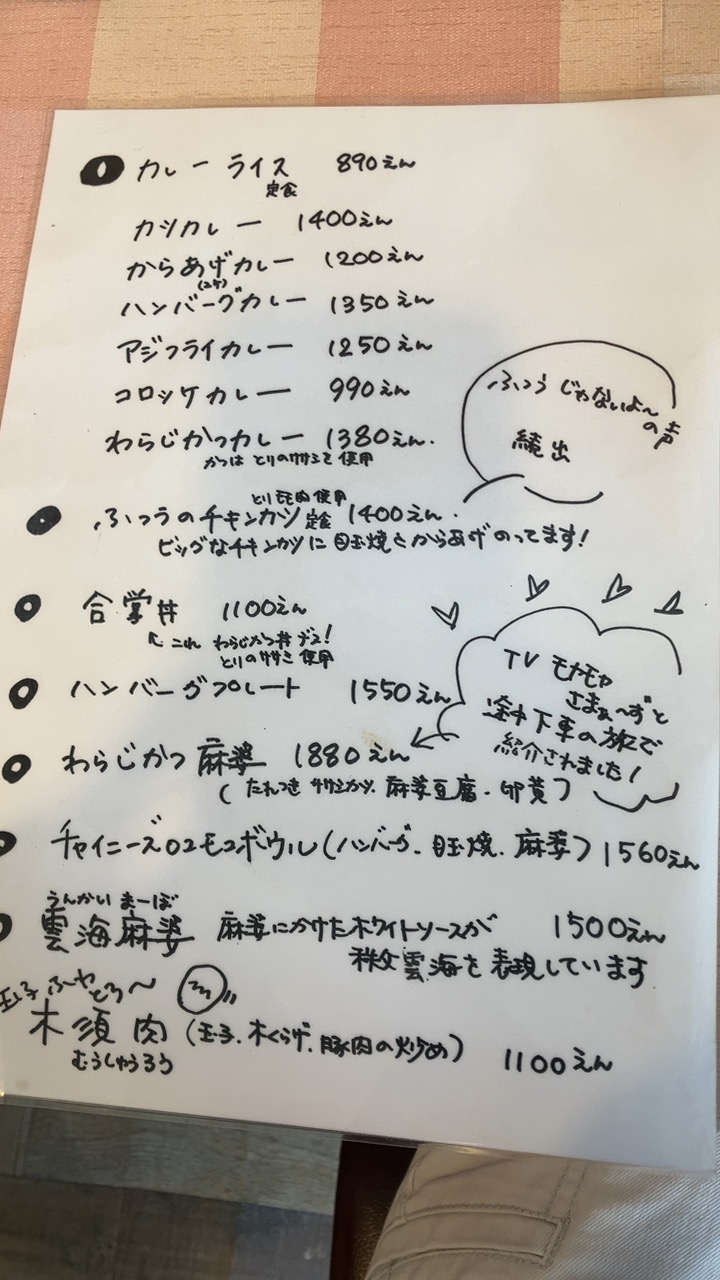 カレーライス 890えん
定食
カツカレー 1400えん
からあげカレー 1200えん
(2ケ)
ハンバーグカレー 1350えん
アジフライカレー 1250えん
コロッケカレー 990えん
わらじかつカレー 1380えん.
かつは とりのササミを使用
ふつうじゃないよ〜
の声
続出
とりモモ肉使用
ふつうのチキンカツ定食 1400えん.
ビッグなチキンカツに目玉焼とからあげのってます!
合掌丼 1100えん
↖これ わらじかつ丼デス!
とりのササミ使用
ハンバーグプレート 1550えん
TV モヤモヤ
さまぁ〜ずと
途中下車の旅で
紹介されました!
わらじかつ麻婆 1880えん
(たれつきササミカツ.麻婆豆腐.卵黄)
チャイニーズロコモコボウル(ハンバーグ.目玉焼.麻婆) 1560えん
うんかいまーぼ
雲海麻婆 麻婆にかけたホワイトソースが 1500えん
秩父雲海を表現しています
玉子ふわとろ〜
木須肉(玉子.木くらげ.豚肉の炒め) 1100えん
むうしゅうろう